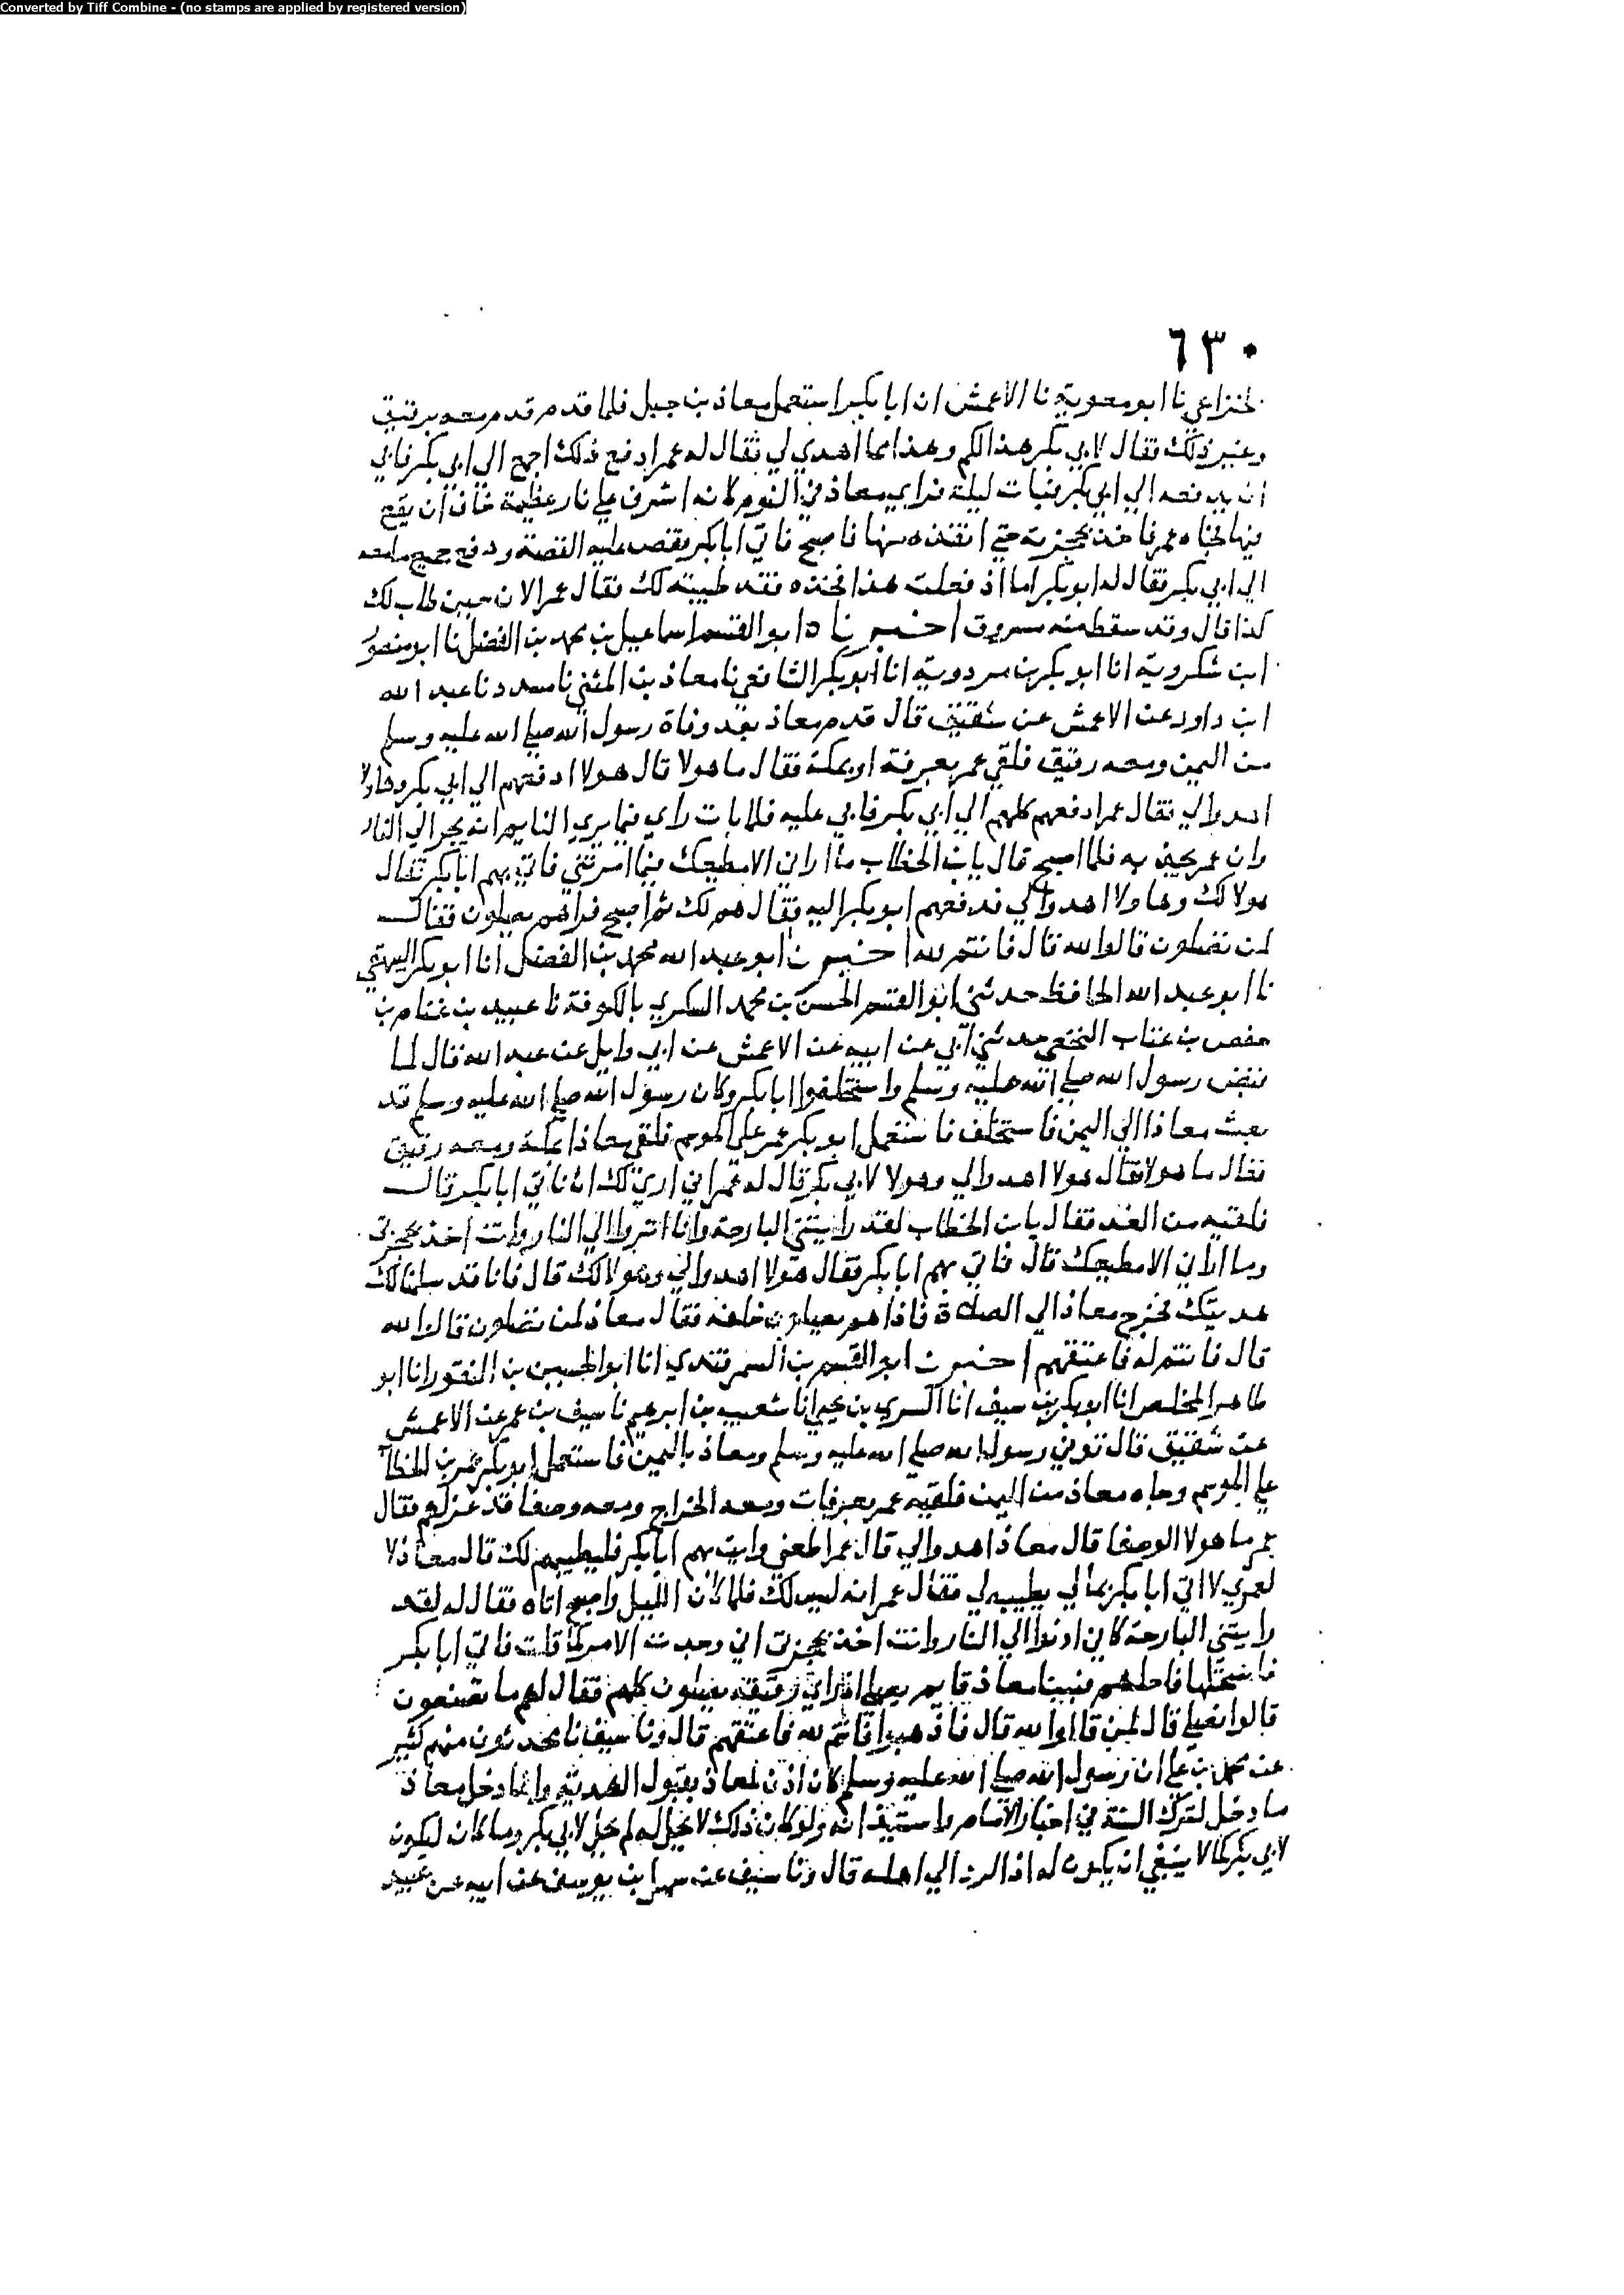 Converted by Tiff Combine - (no stamps are applied by registered version)
٦٣٠
الخزاعي نا ابو معوية نا الاعمش ان ابا بكر استعمل معاذ بن جبل فلما قدم قدم معه برقيق
وغير ذلك فقال لابي بكر هذا لكم وهذا مما اهدي لي فقال له عمر ادفع ذلك اجمع الي ابي بكر فابي
ان يدفعه الي ابي بكر فبات ليلة فراي معاذ في النوم كانه اشرف علي نار عظيمة فخاف ان يقع
فيها فجاه عمر فاخذ بحجزته حتي انقذه منها فاصبح فاتي ابا بكر فقص عليه القصة ودفع جميع ما معه
الي ابي بكر فقال له ابو بكر اما اذ فعلت هذا فخذه فقد طيبته لك فقال عمر الان حين طاب لك
كذا قال وقد سقط منه مسروق اخبرنا ابو القسم اسماعيل بن محمد بن الفضل نا ابو منصور
ابن شكروية انا ابو بكر بن مردوية انا ابو بكر الشافعي نا معاذ بن المثني نا مسدد نا عبد الله
ابن داود عن الاعمش عن شقيق قال قدم معاذ بعد وفاة رسول الله صلي الله عليه وسلم
من اليمن ومعه رقيق فلقي عمر بعرفة او بمكة فقال ما هولا قال هولا ادفعهم الي ابي بكر وهاولا
اهدوا لي فقال عمر ادفعهم كلهم الي ابي بكر فابي عليه فلما بات راي فيما يري النايم انه يجر الي النار
وان عمر يجذبه فلما اصبح قال يا بن الخطاب ما اراني الا مطيعك فيما امرتني فاتي بهم ابا بكر فقال
هولا لك وهاولا اهدوا لي فدفعهم ابو بكر اليه فقال هم لك ثم اصبح فراهم يصلون فقال
لمن تصلون قالوا لله قال فانتم لله اخبرنا ابو عبد الله محمد بن الفضل انا ابو بكر البيهقي
نا ابو عبد الله الحافظ حدثني ابو القسم الحسن بن محمد السكري بالكوفة نا عبيد بن غنام بن
حفص بن غياث النخعي حدثني ابي عن ابيه عن الاعمش عن ابي وايل عن عبد الله قال لما
قبض رسول الله صلي الله عليه وسلم واستخلفوا ابا بكر وكان رسول الله صلي الله عليه وسلم قد
بعث معاذا الي اليمن فاستخلف فاستعمل ابو بكر عمر علي الموسم فلقي معاذا بمكة ومعه رقيق
فقال ما هولا فقال هولا اهدوا لي وهولا لابي بكر قال له عمر اني اري لك ان تاتي ابا بكر قال
فلقيه من الغد فقال يا بن الخطاب لقد رايتني البارحة وانا انزوا الي النار وانت اخذ بحجزتي
وما اراني الا مطيعك قال فاتي بهم ابا بكر فقال هولا اهدوا لي وهولا لك قال فانا قد سلمنا لك
هديتك فخرج معاذ الي الصلاة فاذا هم يصلون خلفه فقال معاذ لمن تصلون قالوا لله
قال فانتم له فاعتقهم اخبرنا ابو القسم بن السمرقندي انا ابو الحسين بن النقور انا ابو
طاهر المخلص انا ابو بكر بن سيف انا السري بن يحي انا شعيب بن ابرهيم نا سيف بن عمر عن الاعمش
عن شقيق قال توفي رسول الله صلي الله عليه وسلم ومعاذ باليمن فاستعمل ابو بكر عمر بن الخطاب
علي الموسم وجاه معاذ من اليمن فلقيه عمر بعرفات ومعه الخراج ومعه وصفا قد عزلهم فقال
عمر ما هولا الوصفا قال معاذ اهدوا لي قال عمر اطعني وايت بهم ابا بكر فليطيبهم لك قال معاذ لا
لعمري لا اتي ابا بكر بمالي يطيبه لي فقال عمر انه ليس لك فلما كان الليل واصبح اتاه فقال له لقد
رايتني البارحة كاني ادنوا الي النار وانت اخذ بحجزتي اني وجدت الامر كما قلت فاتي ابا بكر
فاستحلها فاحلهم فبينا معاذ قايم يصلي اذ راي رقيقه يصلون كلهم فقال لهم ما تصنعون
قالوا نصلي قال لمن قالوا لله قال فاذهبوا فانتم لله فاعتقهم قال ونا سيف نا محدثون منهم كثير
عن محمد بن علي ان رسول الله صلي الله عليه وسلم كان اذن لمعاذ بقبول الهدية وانما دخل معاذ
ما دخل لترك السنة في اخبار الامام واستيذانه ولو كان ذلك لا يحل له لم يحل لابي بكر وما كان ليكون
لابي بكر كما لا ينبغي ان يكون له اذا الرد الي اهله قال ونا سيف عن سهل بن يوسف عن ابيه عن عبيد